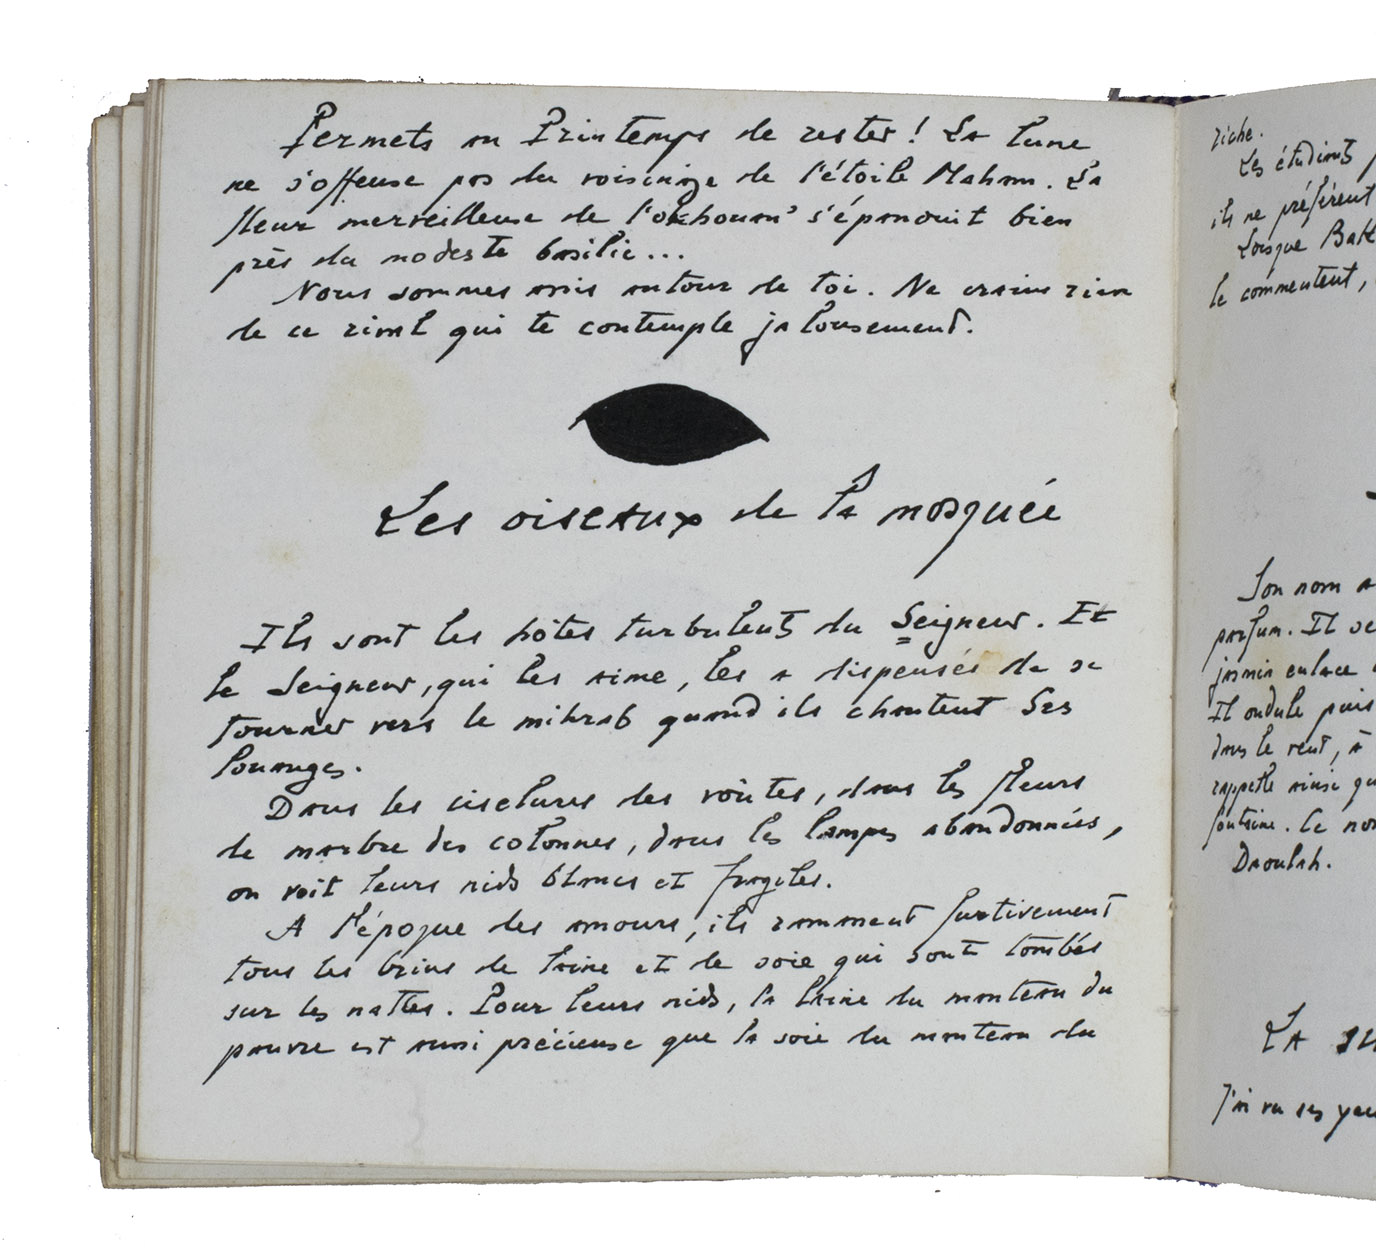 Permets au Printemps de rester ! La lune
ne s'offense pas du voisinage de l'étoile Maham. La
fleur merveilleuse de l'okhouan' s'épanouit bien
près du modeste basilic...
Nous sommes assis autour de toi. Ne crains rien
de ce rival qui te contemple jalousement.
Les oiseaux de la mosquée
Ils sont les hôtes turbulents du Seigneur. Et
le Seigneur, qui les aime, les a dispensés de se
tourner vers le mihrab quand ils chantent Ses
louanges.
Dans les ciselures des voûtes, dans les fleurs
de marbre des colonnes, dans les lampes abandonnées,
on voit leurs nids blancs et fragiles.
A l'époque des amours, ils ramassent furtivement
tous les brins de laine et de soie qui sont tombés
sur les nattes. Pour leurs nids, la laine du manteau du
pauvre est aussi précieuse que la soie du manteau du
riche.
Les étudiants
ils ne préfèrent
Lorsque
le commentent,
Son nom a
parfum. Il se
jasmin enlace
Il ondule puis
dans le vent, à
rappelle ainsi
fontaine. Ce nom
Daoulah.
La
J'ai vu ses yeux